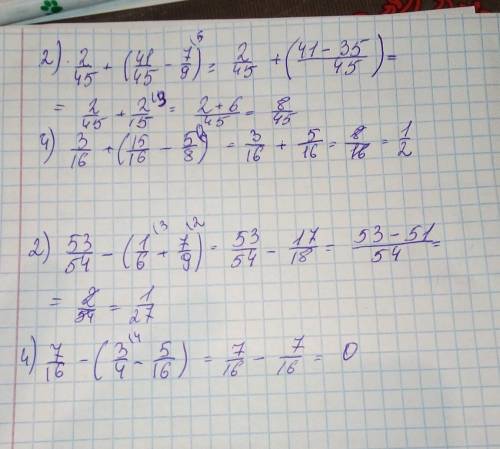 2) 2/45 + (41/45 - 7/9)⁽⁵ = 2/45 + (41 - 35/45) =
= 2/45 + 2/15⁽³ = 2+6/45 = 8/45
4) 3/16 + (15/16 - 5/8) = 3/16 + 5/16 = 8/16 = 1/2
2) 53/54 - (1/6⁽³ + 7/9⁽²) = 53/54 - 17/18 = 53-51/54 =
= 2/54 = 1/27
4) 7/16 - (3/4⁽⁴ - 5/16) = 7/16 - 7/16 = 0